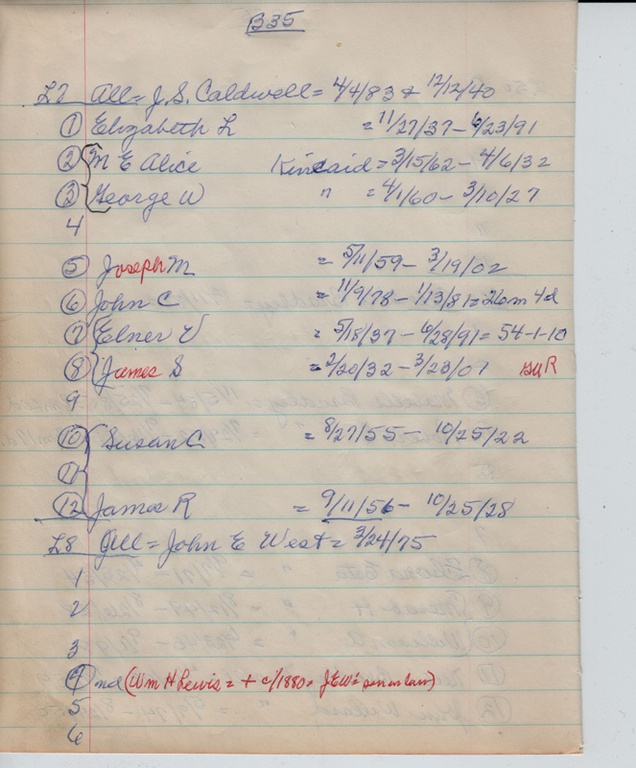 B35
L7 All = J.S. Caldwell = 4/4/83 & 12/12/40
① Elizabeth L = 11/27/37 – 6/23/91
② M E Alice Kincaid = 3/15/62 – 4/6/32
③ George W " = 4/1/60 – 3/10/27
4
⑤ Joseph M = 5/11/59 – 3/19/02
⑥ John C = 11/9/78 – 1/13/81 = 26m 4d
⑦ Elner V = 5/18/37 – 6/28/91 = 54-1-10
⑧ James S = 2/20/32 – 3/23/01 R
9
⑩ Susan C = 8/27/55 – 10/25/22
⑪
⑫ James R = 9/11/56 – 10/25/28
L8 All = John E West = 3/24/75
1
2
3
④ nd (Wm H Lewis = + c/1880 = JEW's son in law)
5
6